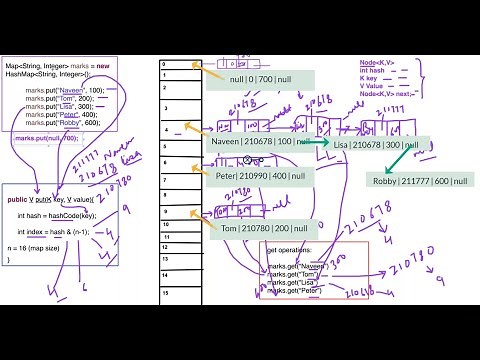 Map<String, Integer> marks = new
HashMap<String, Integer>();
marks.put("Naveen", 100);
marks.put("Tom", 200);
marks.put("Lisa", 300);
marks.put("Peter", 400);
marks.put("Robby", 600);
marks.put(null, 700);
211777 Naveen
210678 Lisa
210780
public V put(K key, V value){
int hash = hashCode(key);
int index = hash & (n-1);
n = 16 (map size)
}
9
4
4
6
0
1
2
3
4
5
6
7
8
9
10
11
12
13
14
15
null | 0 | 700 | null
210678
210678
211777
null
Naveen | 210678 | 100 | null
Lisa | 210678 | 300 | null
Robby | 211777 | 600 | null
Peter| 210990 | 400 | null
210780
null
Tom | 210780 | 200 | null
Node<K,V>
int hash
K key
V Value
Node<K,V> next;
get operations:
marks.get("Naveen")
marks.get("Tom")
marks.get("Lisa")
marks.get("Peter")
300
400
210678
4
210780
9
210678
4